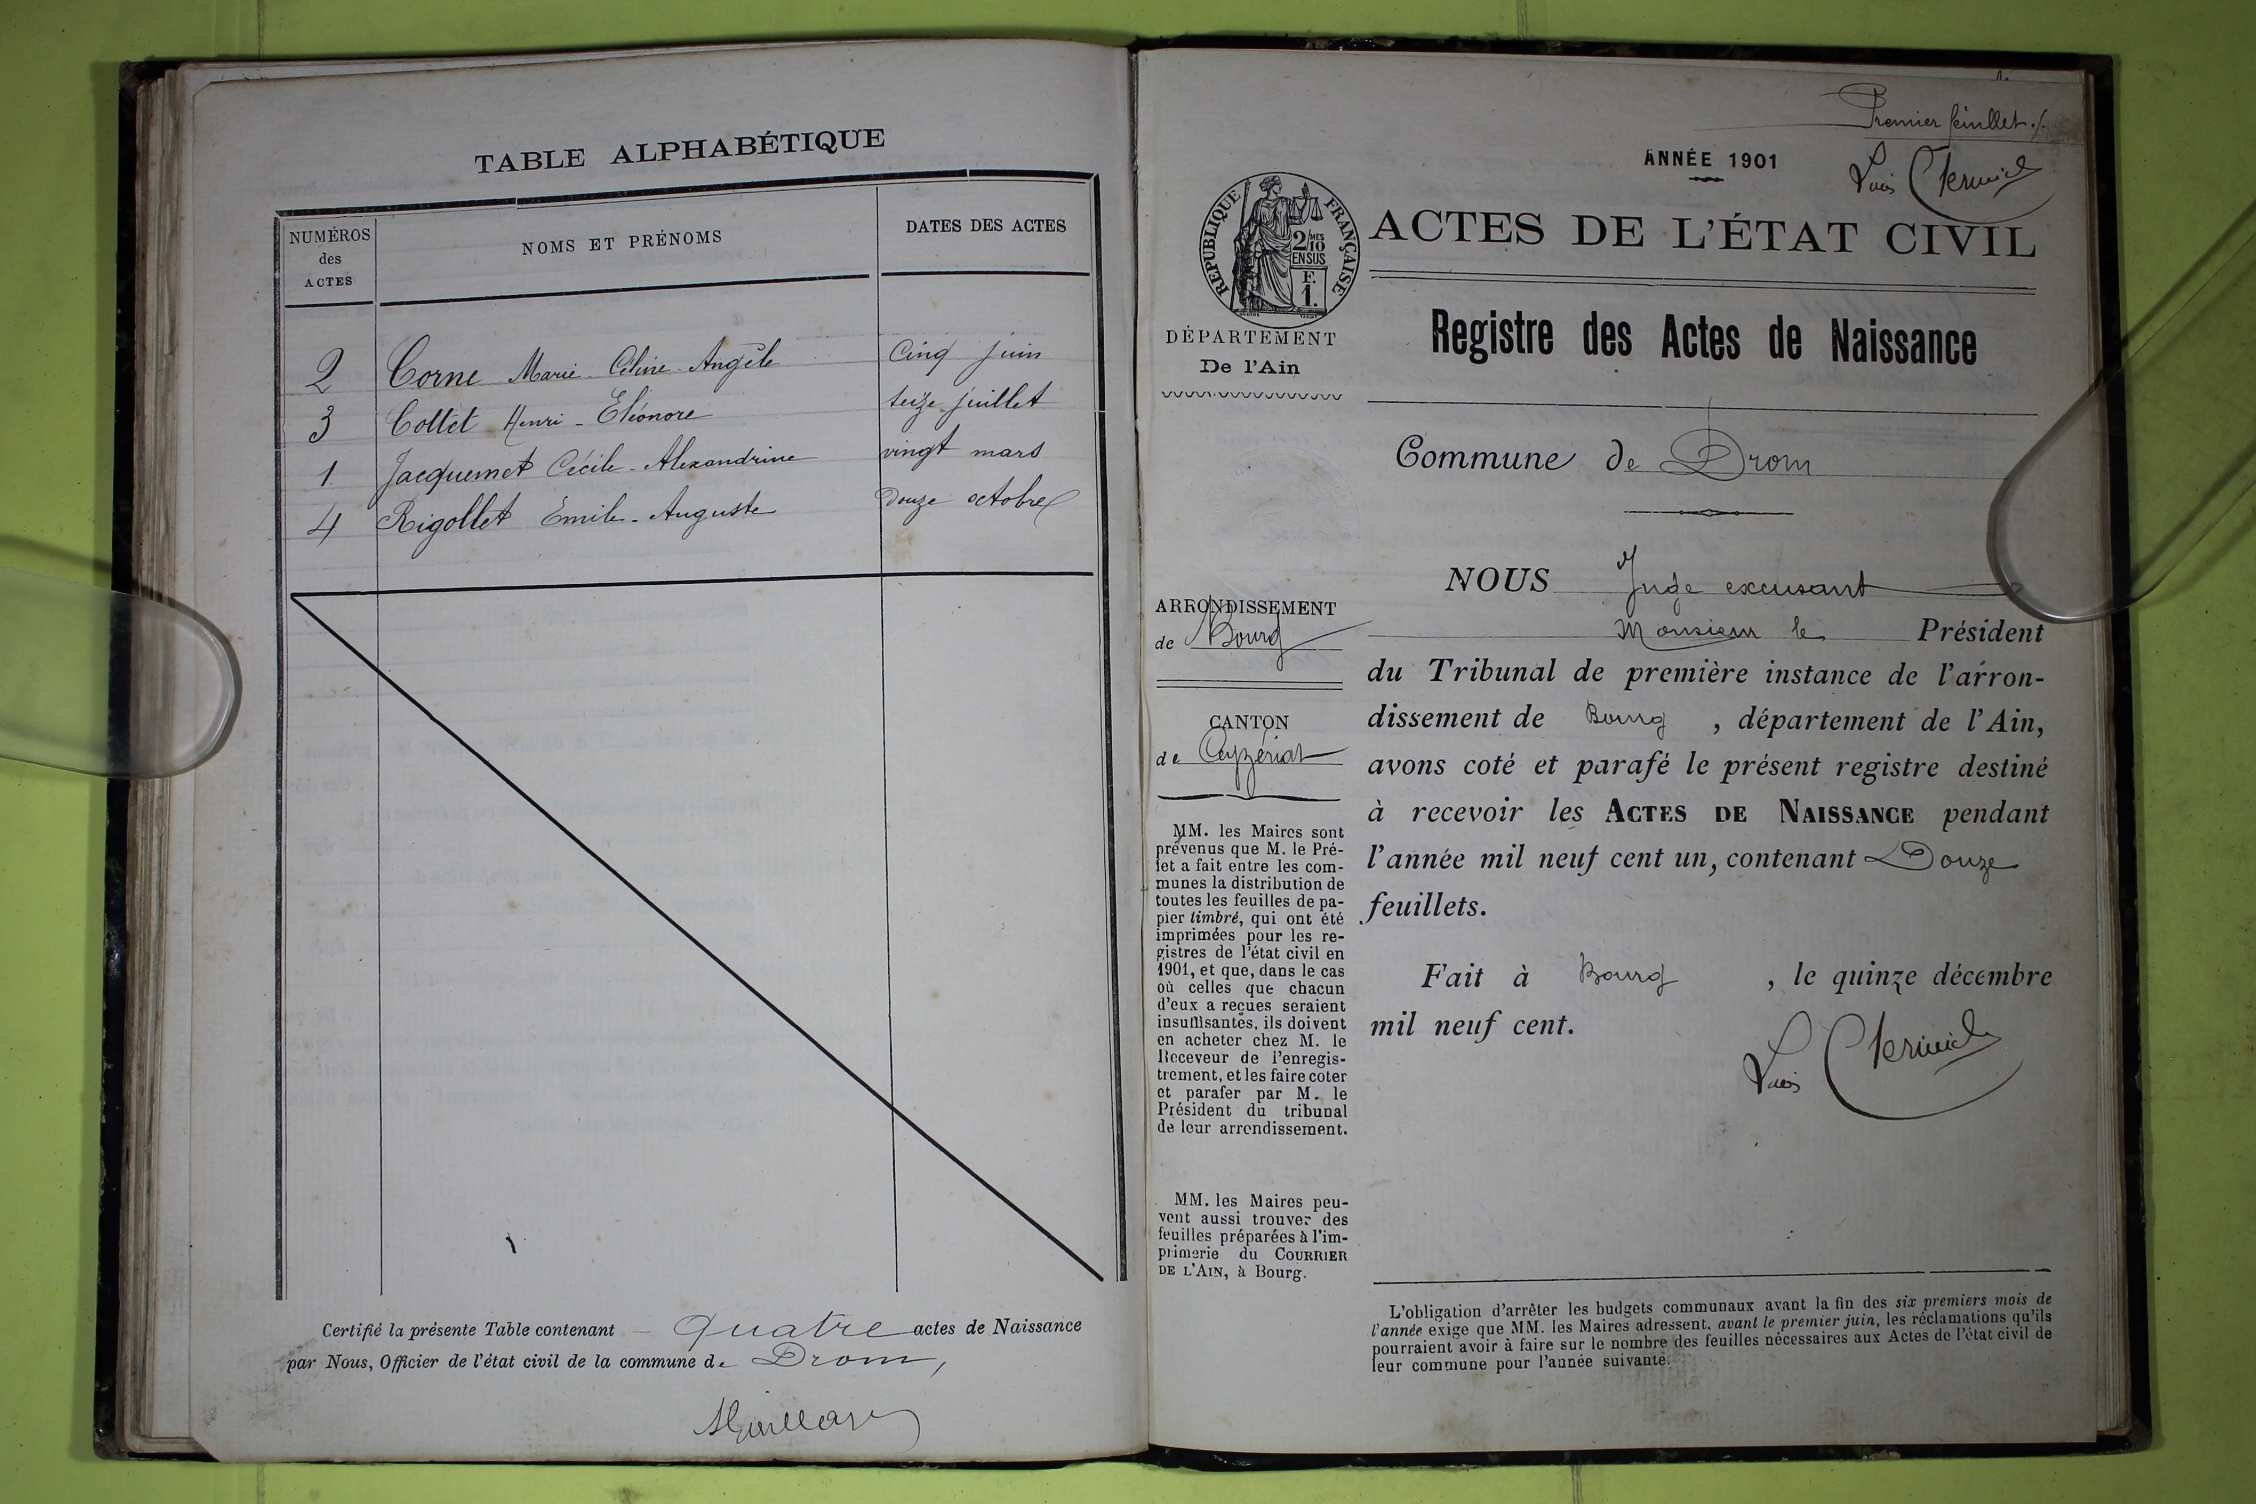 TABLE ALPHABÉTIQUE
NUMÉROS
des
ACTES
NOMS ET PRÉNOMS
DATES DES ACTES
2 Corne Marie Céline Angèle cinq juin
3 Cottet Henri - Eléonore seize juillet
1 Jacquemet Cécile - Alexandrine vingt mars
4 Rigollet Emile - Auguste Douze octobre
Certifié la présente Table contenant - quatre actes de Naissance
par Nous, Officier de l'état civil de la commune de Drom,
Premier feuillet ./.
ANNÉE 1901
RÉPUBLIQUE FRANÇAISE
2/10 MES
EN SUS
F.
1.
ACTES DE L'ÉTAT CIVIL
DÉPARTEMENT
De l'Ain
Registre des Actes de Naissance
Commune de Drom
ARRONDISSEMENT
de Bourg
CANTON
de Ceyzériat
MM. les Maires sont
prévenus que M. le Pré-
fet a fait entre les com-
munes la distribution de
toutes les feuilles de pa-
pier timbré, qui ont été
imprimées pour les re-
gistres de l'état civil en
1901, et que, dans le cas
où celles que chacun
d'eux a reçues seraient
insuffisantes, ils doivent
en acheter chez M. le
Receveur de l'enregis-
trement, et les faire coter
et parafer par M. le
Président du tribunal
de leur arrondissement.
MM. les Maires peu-
vent aussi trouver des
feuilles préparées à l'im-
primerie du COURRIER
DE L'AIN, à Bourg.
NOUS Juge excusant
Monsieur le Président
du Tribunal de première instance de l'arron-
dissement de Bourg , département de l'Ain,
avons coté et parafé le présent registre destiné
à recevoir les ACTES DE NAISSANCE pendant
l'année mil neuf cent un, contenant Douze
feuillets.
Fait à Bourg , le quinze décembre
mil neuf cent.
L'obligation d'arrêter les budgets communaux avant la fin des six premiers mois de
l'année exige que MM. les Maires adressent, avant le premier juin, les réclamations qu'ils
pourraient avoir à faire sur le nombre des feuilles nécessaires aux Actes de l'état civil de
leur commune pour l'année suivante.